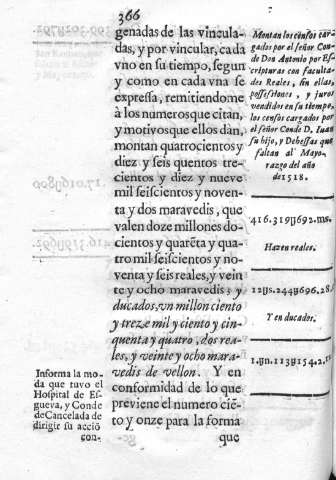 366
genadas de las vincula-
das, y por vincular, cada
vno en su tiempo, segun
y como en cada vna se
expressa, remitiendome
à los numeros que citan,
y motivos que ellos dàn,
montan quatrocientos y
diez y seis quentos tre-
cientos y diez y nueve
mil seiscientos y noven-
ta y dos maravedis, que
valen doze millones do-
cientos y quarẽta y qua-
tro mil seiscientos y no-
venta y seis reales, y vein
te y ocho maravedis; y
ducados, vn millon ciento
y treze mil y ciento y cin-
quenta y quatro, dos rea-
les, y veinte y ocho mara-
vedis de vellon. Y en
conformidad de lo que
previene el numero ciẽ-
to y onze para la forma
que
Montan los censos car-
gados por el señor Con-
de Don Antonio por Es-
cripturas con faculta-
des Reales, sin ellas,
possessiones, y juros
vendidos en su tiempo,
los censos cargados por
el señor Conde D. Iuan
su hijo, y Debessas que
faltan al Mayo-
razgo del año
de 1518.
416.319U692.ms.
Hazen reales.
12U s.244U696.28.
Y en ducados.
1.qn.113U154.2.r.
Informa la mo-
da que tuvo el
Hospital de Es-
gueva, y Conde
de Cancelada de
dirigir su acció
con-